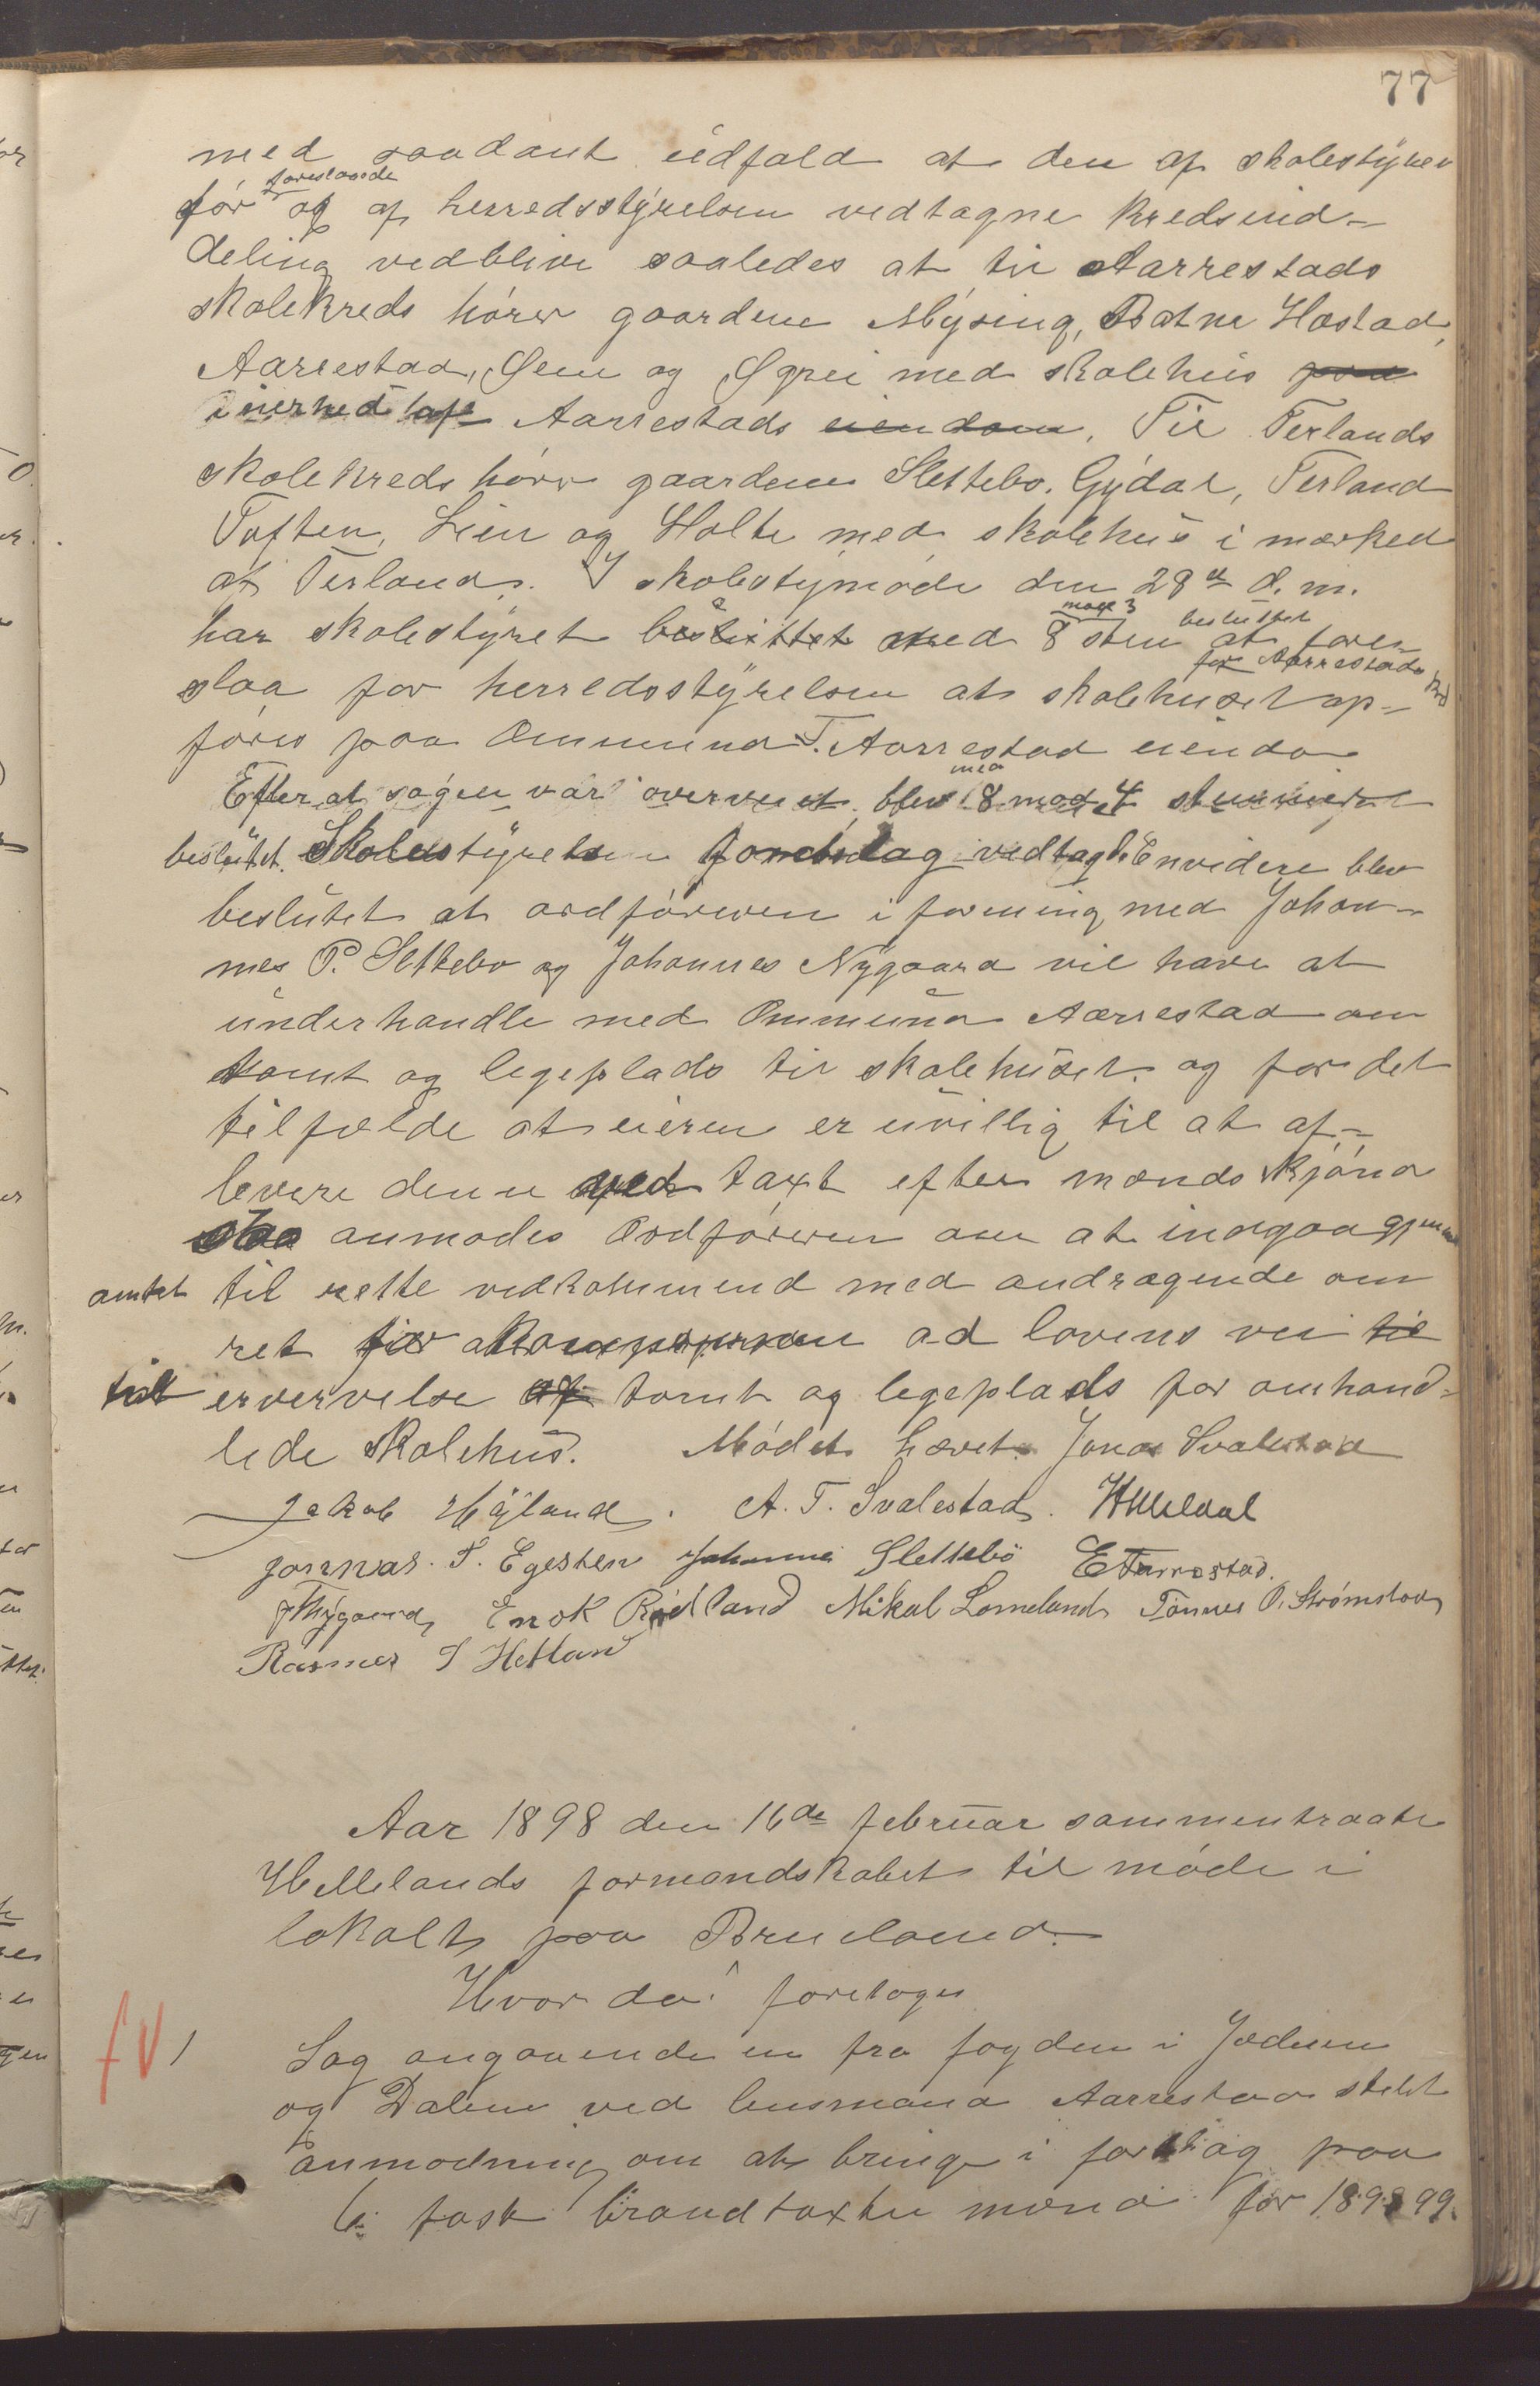 77
med saadant udfald at den af skolestyret
før foreslaaede og af herredsstyrelsen vedtagne kredsind-
deling vedblive saaledes at til Aarrestads
skolekreds hører gaardene Mysing, Batne Hæstad,
Aarrestad, Øen og Øgrei med skolehus paa
i nærhed af Aarrestads eiendom. Til Terlands
skolekreds hører gaardene Slettebø, Gydal, Terland
Toften, Lien og Holte med skolehus i nærhed
af Terland. I skolestyrmøde den 28de d. m.
har skolestyret besluttet med 8 mod 3 stem besluttet at fore-
slaa for herredsstyrelsen at skolehuset for Aarrestads krd op-
føres paa Ommund T. Aarrestad eiendo
Efter at sagen var overveiet, blev med 8 mod 4 stemmer
beslutet Skolestyrelsen forslag vedtaget. Envidere blev
beslutet at ordføreren i forening med Johan-
nes P. Slettebø og Johannes Nygaard vil have at
underhandle med Ommund Aarrestad om
tomt og legeplads til skolehuset og for det
tilfælde at eieren er uvillig til at af-
levere denne ved taxt efter mænds skjøn
anmodes Ordføreren om at indgaa gjennem
amtet til rette vedkommend med andragende om
ret til ad lovens vei til
til ervervelse af tomt og legeplads for omhand-
lede skolehus. Mødet hævet. Jonas Svalestad
Jakob Høyland. A. T. Svalestad. H Melaal
Jonnas. T. Egesten Johannes Slettebö E Aarrestad.
J Nygaard, Enok Rødland Mikal Lomeland Tønnes O. Strømstad
Rasmus S Hetland
Aar 1898 den 16de februar sammentraadte
Hellelands formandskabet til møde i
lokalt paa Brueland.
Hvor da foretoges
fv 1 Sag angaaende en fra fogden i Jæderen
og Dalene ved lensmand Aarrestad stilet
anmodning om at bringe i forslag paa
6 fast brandtaxtu mænd for 1898 99.